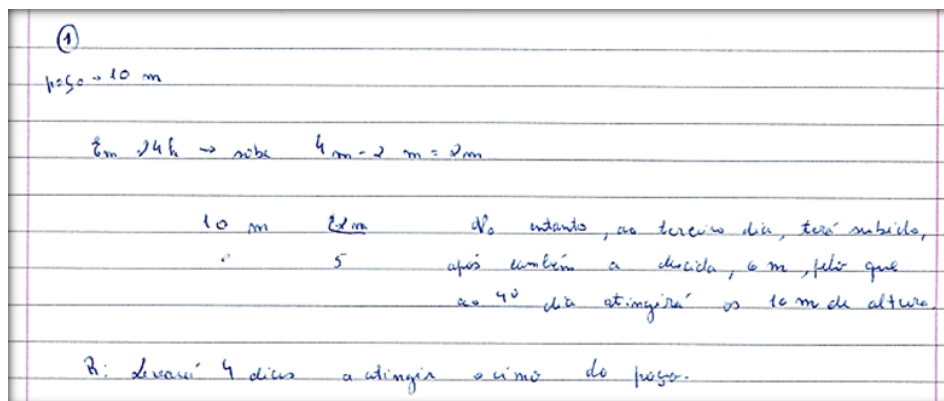 ①
poço → 10 m
Em 24h → sobe 4 m - 2 m = 2m
10 m 2 m No entanto, ao terceiro dia, terá subido,
0 5 após também a descida, 6 m, pelo que
ao 4º dia atingirá os 10 m de altura.
R: Levará 4 dias a atingir o cimo do poço.